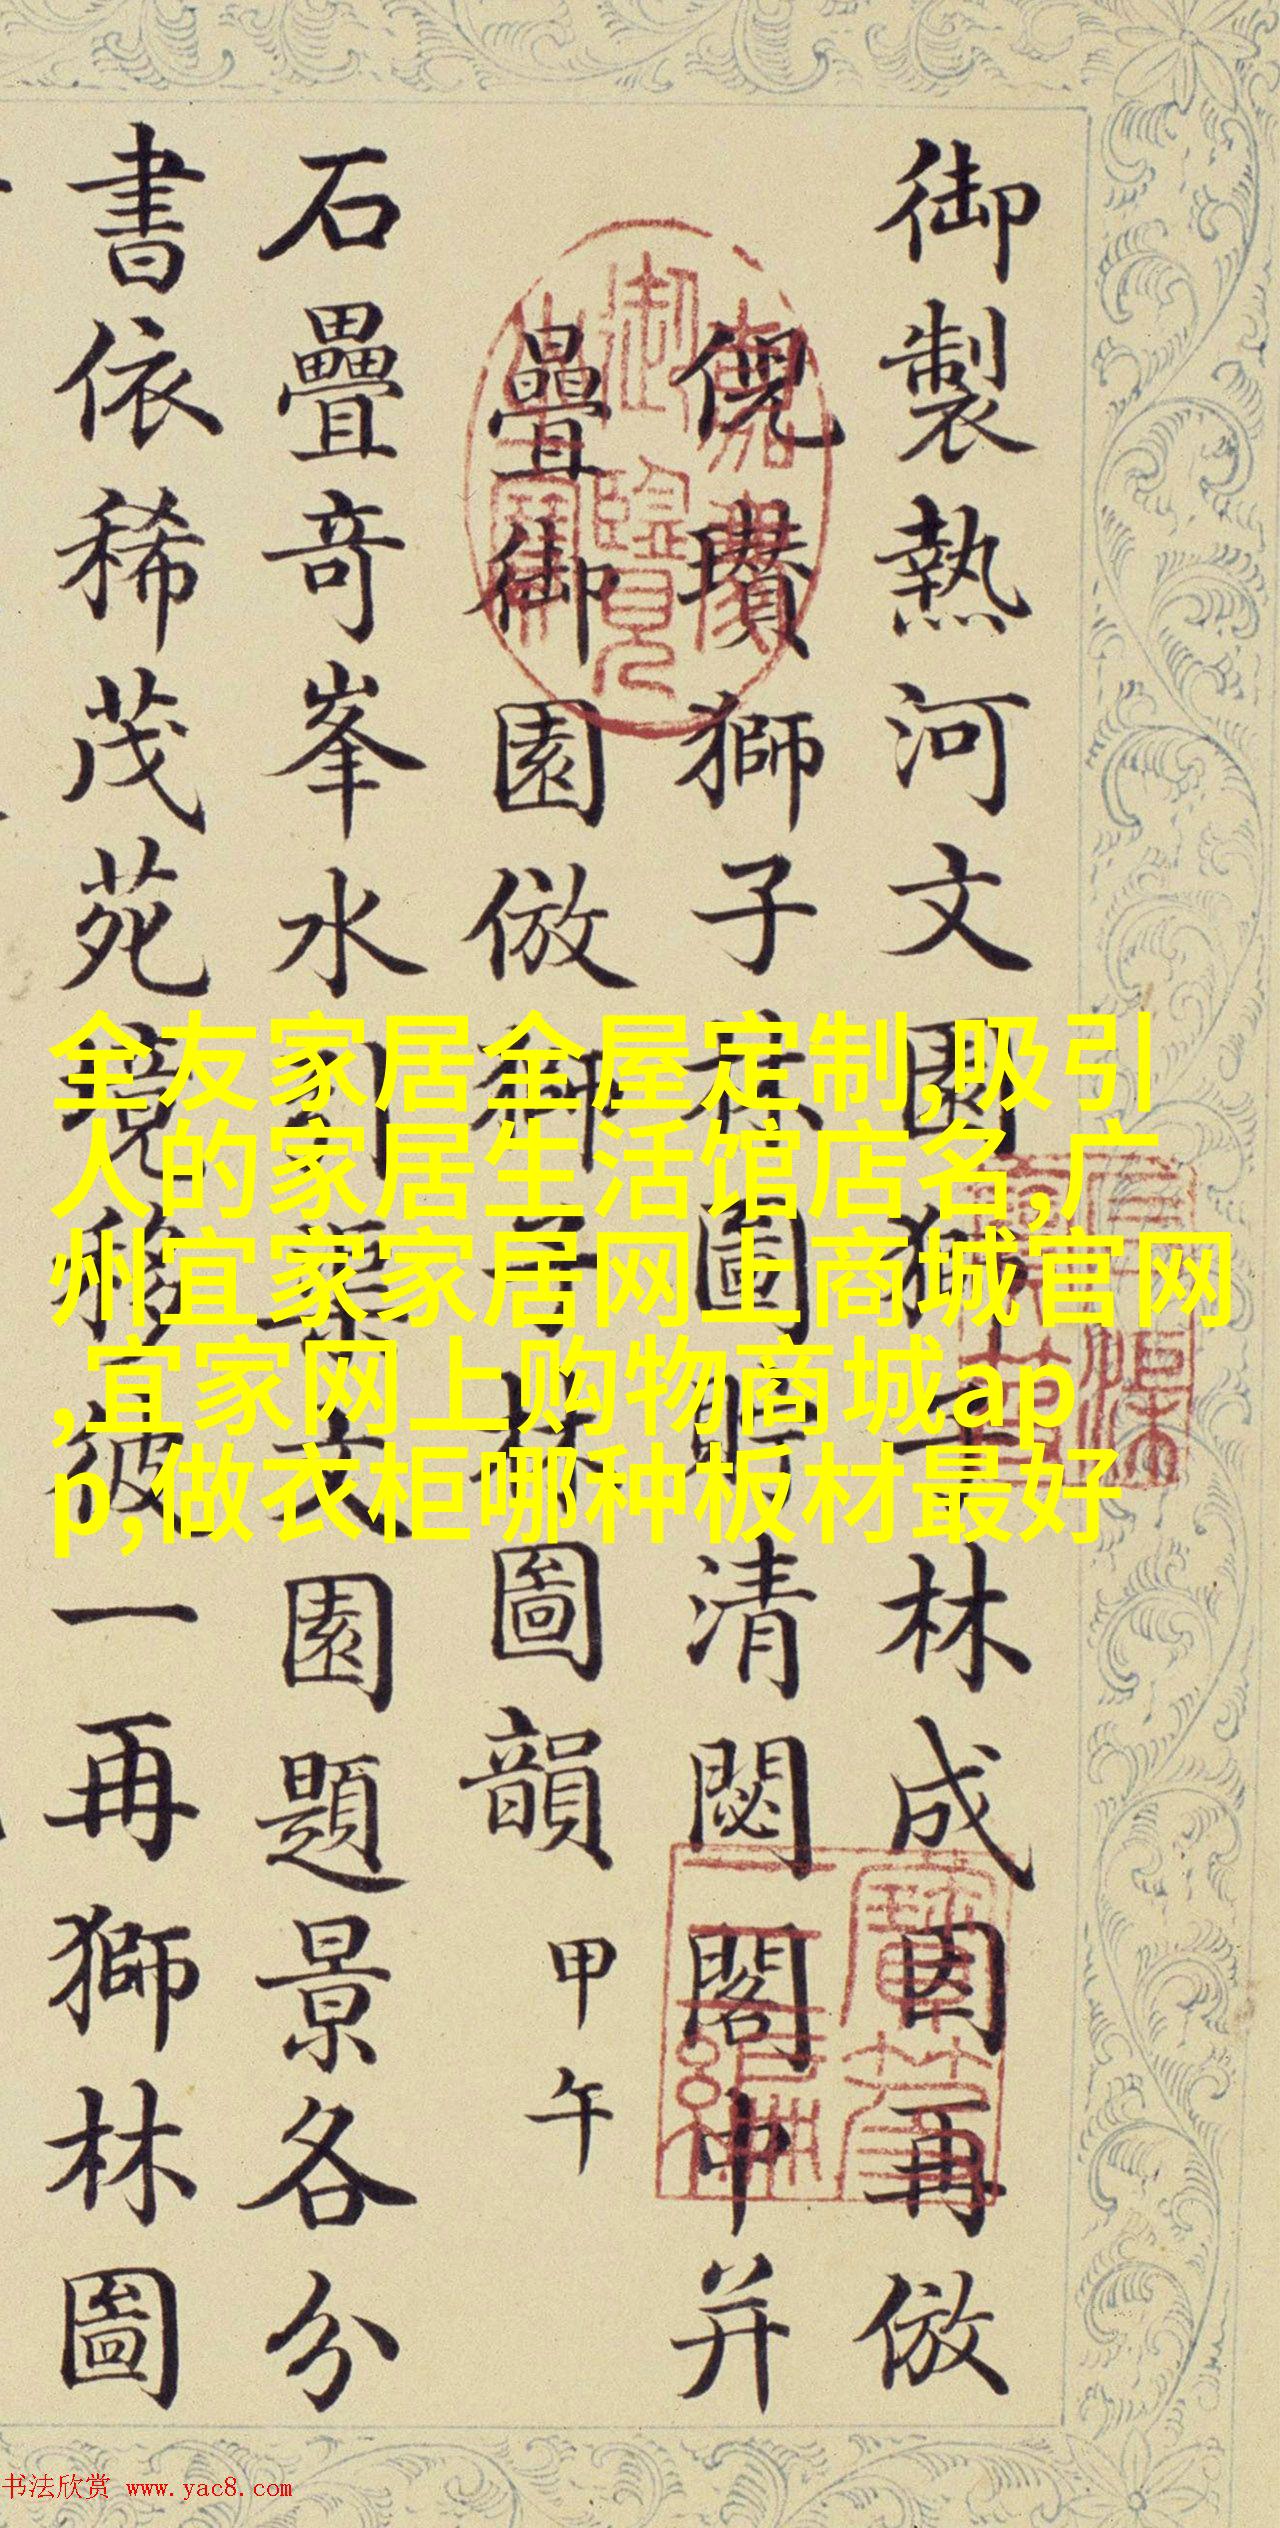 御製熱河文園獅子林成因再倣
倪瓚獅子林圖貯清閟閣中并
疊御園倣獅子林圖韻 甲午
石疊竒峯水引葉衣園題景各分
書依稀茂苑境移彼一再獅林圖
全友家居全屋定制,吸引
人的家居生活馆店名,广
州宜家家居网上商城官网
,宜家网上购物商城ap
p,做衣柜哪种板材最好
书法欣赏 www.yac8.com